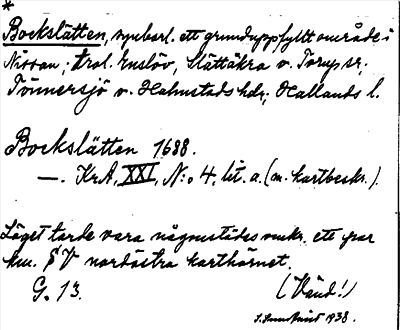 *
Bockslätten, synbarl. ett grunduppfyllt område i
Nissan; trol. Enslöv, Slättåkra o. Torup sr,
Tönnersjö o. Halmstads hdr, Hallands l.
Bockslätten 1688.
—. KrA, XXI, N:o 4, lit. a. (m. kartbeskr.).
Läget torde vara någonstädes omkr. ett par
km. SV nordöstra karthörnet.
G. 13.
(Vänd!)
1938.